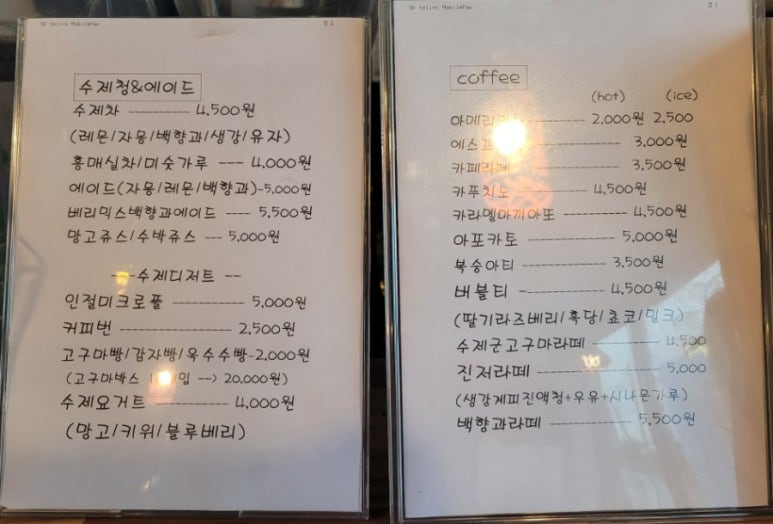 SK telink MobileFax
수제청&에이드
수제차 ---------- 4,500원
(레몬/자몽/백향과/생강/유자)
홍매실차/미숫가루 --- 4,000원
에이드(자몽/레몬/백향과)-5,000원
베리믹스백향과에이드 ---- 5,500원
망고쥬스/수박쥬스 --- 5,000원
---수제디저트 --
인절미크로플 ------------ 5,000원
커피번 -------------- 2,500원
고구마빵/감자빵/옥수수빵-2,000원
(고구마박스 --> 20,000원)
수제요거트 ---------- 4,000원
(망고/키위/블루베리)
SK telink MobileFax
coffee
(hot) (ice)
---------- 2,000원 2,500
---------- 3,000원
카페라떼 ---------- 3,500원
카푸치노 ---------- 4,500원
카라멜마끼아또 ---------- 4,500원
아포카토 ------------- 5,000원
복숭아티 ------------ 3,500원
버블티 ------------ 4,500원
(딸기라즈베리/흑당/쵸코/밀크)
수제군고구마라떼 ---- 4,500
진저라떼 ------------ 5,000
(생강계피진액청+우유+시나몬가루)
백향과라떼 ------------ 5,500원